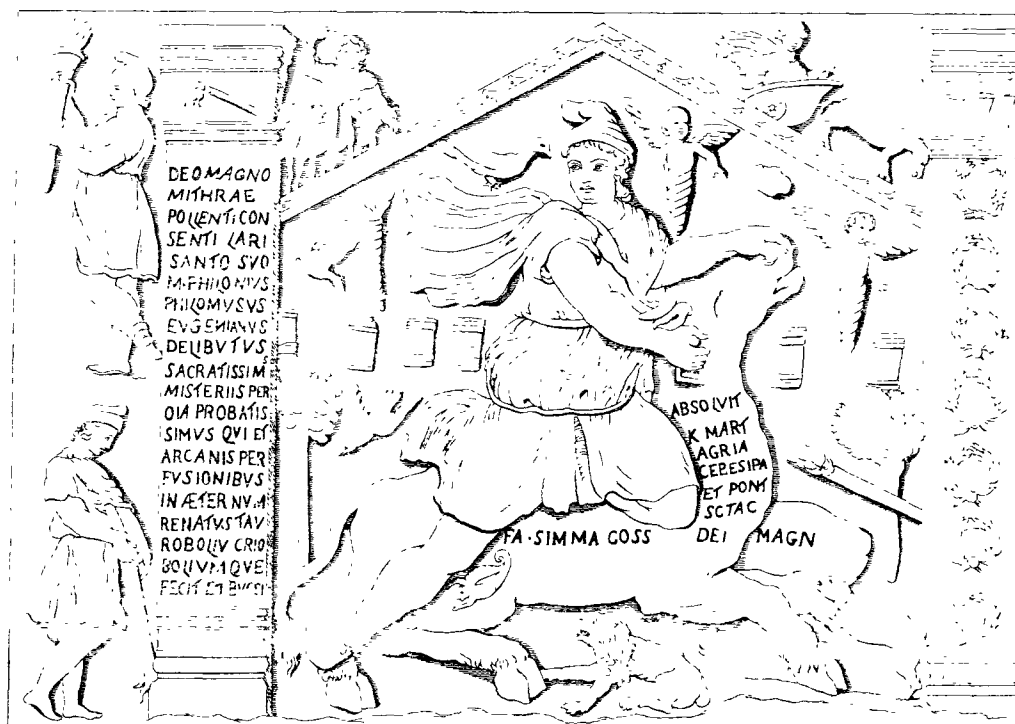 DEO MAGNO
MITHRAE
POLLENTI CON
SENTI LARI
SANTO SVO
M·PHILONIVS
PHILOMVSVS
EVGENIANVS
DELIBVTVS
SACRATISSIM
MISTERIIS PER
OIA PROBATIS
SIMVS QVI ET
ARCANIS PER
FVSIONIBVS
IN ÆTERNVM
RENATVS TAV
ROBOLIV CRIO
BOLIVMQVE
FECIT ET
ABSOLVIT
K MART
AGRIA
ET PONT
SCTAC
FA·SIMMA COSS DEI MAGN